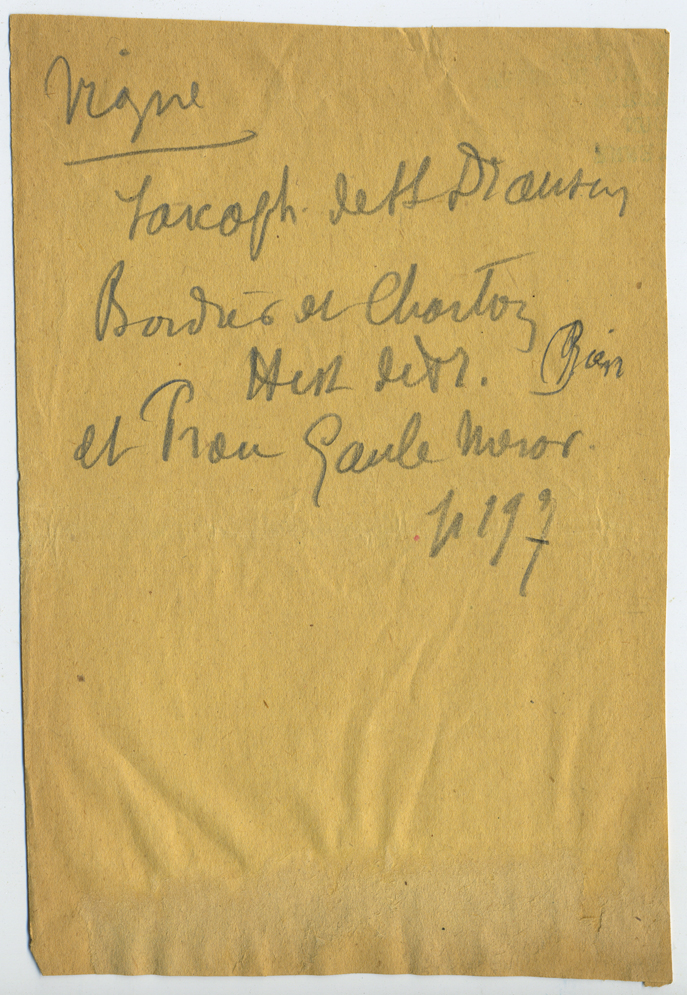 Vigne
Sarcoph. de St Drausin
Bordier et Charton
Hist de Fr.
et Prou Gaule Merov.
p 197